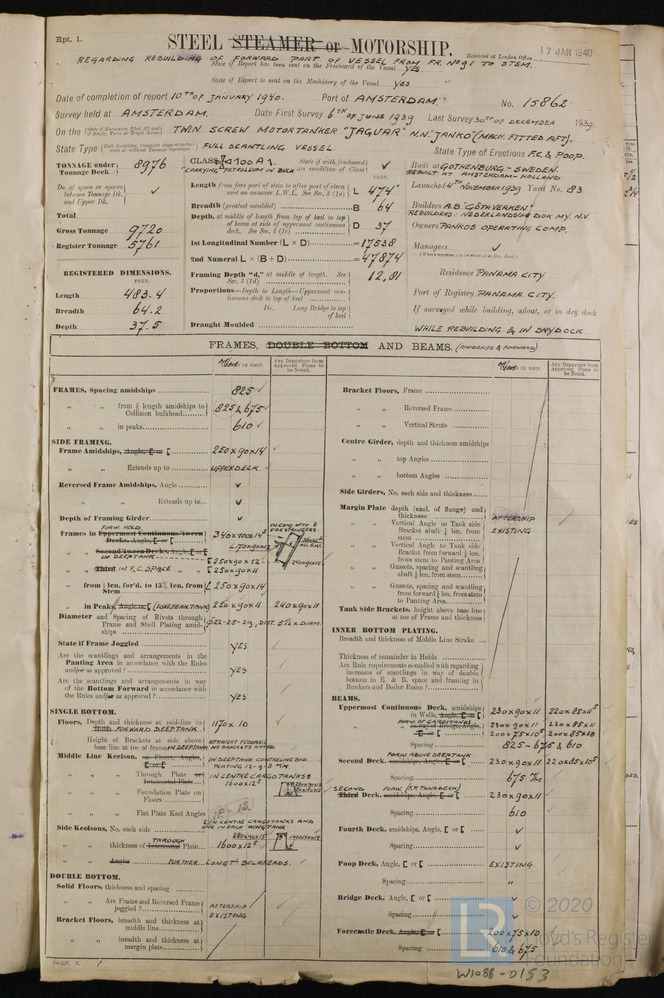 Rpt. 1.
STEEL STEAMER or MOTORSHIP.
Received at London Office 17 JAN 1940
REGARDING REBUILDING OF FORWARD PART OF VESSEL FROM FR. No 91 TO STEM.
State if Report has been sent on the Freeboard of the Vessel YES
State if Report is sent on the Machinery of the Vessel YES
Date of completion of report 10TH OF JANUARY 1940. Port of AMSTERDAM. No. 15862
Survey held at AMSTERDAM. Date First Survey 6TH OF JUNE 1939 Last Survey 30TH OF DECEMBER 1939.
On the TWIN SCREW MOTORTANKER "JAGUAR" N.N. "JANKO" (MACH. FITTED AFT).
State Type FULL SCANTLING VESSEL. State Type of Erections F.C. & POOP.
TONNAGE under Tonnage Deck 8976
CLASS 100 A1. State if with freeboard as condition of Class ✓
"CARRYING PETROLEUM IN BULK"
Built at GOTHENBURG - SWEDEN.
REBUILT AT AMSTERDAM - HOLLAND
Do. of space or spaces between Tonnage Dk. and Upper Dk. ✓
Length from fore part of stem to after part of stern post on summer L.W.L. See Sec. 3 (1a) L 474'
Launched 4TH NOVEMBER 1939 Yard No. 83
Breadth (greatest moulded) B 64
Builders A.B. "GÖTAVERKEN"
REBUILDERS: NEDERLANDSCHE DOK MY. N.V.
Total
Depth, at middle of length from top of keel to top of beam at side of uppermost continuous deck. See Sec. 3 (1c) D 37
Gross Tonnage 9720
Owners PANKOS OPERATING COMP.
Register Tonnage 5761
1st Longitudinal Number (L × D) = 17538
Managers ✓
2nd Numeral L × (B + D) = 47874
REGISTERED DIMENSIONS.
FEET.
Framing Depth "d," at middle of length. See Sec. 3 (1d) 12,81
Residence PANAMA CITY
Length 483.4
Proportions—Depth to Length—Uppermost continuous deck to top of keel
Port of Registry PANAMA CITY.
Breadth 64.2
Do. Long Bridge to top of keel
If surveyed while building, afloat, or in dry dock
Depth 37.5
Draught Moulded
WHILE REBUILDING & IN DRYDOCK
FRAMES, DOUBLE BOTTOM AND BEAMS. (AMIDSHIPS & FORWARD)
IN SHIP. Any Departure from Approved Plans to be Noted.
FRAMES, Spacing amidships 825 ✓
" " from ⅗ length amidships to Collision bulkhead 825 & 675 ✓
" " in peaks 610 ✓
SIDE FRAMING.
Frame Amidships, Angle, 250 x 90 x 14 ✓
" " Extends up to UPPERDECK ✓
Reversed Frame Amidships, Angle ✓
" " Extends up to ✓
Depth of Framing Girder ✓
FORW. HOLD
Frames in Uppermost Continuous 'tween Decks, Angle, 340 x 100 x 14
" " Second 'tween Decks, Angle,
IN DEEPTANK 250 x 90 x 12
" " Third IN F.C. SPACE 250 x 90 x 11
" " from ⅕ len. for'd. to 15% len. from Stem 250 x 90 x 14
" " in Peaks, Angle or (FOREPEAK TANK) 250 x 90 x 11 240 x 90 x 11
Diameter and Spacing of Rivets through Frame and Shell Plating amidships 22-25-29, DIST. 5½ x DIAM.
State if Frame Joggled YES
Are the scantlings and arrangements in the Panting Area in accordance with the Rules and/or as approved? YES
Are the scantlings and arrangements in way of the Bottom Forward in accordance with the Rules and/or as approved? YES
SINGLE BOTTOM.
Floors, Depth and thickness at mid-line in FORWARD DEEPTANK. 1170 x 10
" Height of Brackets at side above base line at toe of frame STRAIGHT FLOORS NO BRACKETS FITTED
Middle Line Keelson, on Floors, Angles, IN DEEPTANK CENTRE LINE BHD PLATING 12-9-8 M/M.
IN CENTRE CARGOTANKS
" " Through Plate or Intercostal Plate 1600 x 12⁵
" " Foundation Plate on Floors
" " Flat Plate Keel Angles
Side Keelsons, No. each side IN CENTRE CARGOTANKS AND ONE IN EACH WINGTANK
" " THROUGH thickness of Intercostal Plate 1600 x 12⁵
" " Angles FURTHER LONGTL BULKHEADS. ✓
DOUBLE BOTTOM.
Solid Floors, thickness and spacing
" " Are Frame and Reversed Frame joggled? AFTERSHIP EXISTING
Bracket Floors, breadth and thickness at middle line
" " breadth and thickness at margin plate
Bracket Floors, Frame
" " Reversed Frame
" " Vertical Struts
Centre Girder, depth and thickness amidships
" " top Angles
" " bottom Angles
Side Girders, No. each side and thickness
Margin Plate depth (excl. of flange) and thickness AFTERSHIP
" " Vertical Angle to Tank side Bracket abaft ¼ len. from stem EXISTING
" " Vertical Angle to Tank side Bracket from forward ¼ len. from stem to Panting Area
" " Gussets, spacing and scantling abaft ¼ len. from stem
" " Gussets, spacing and scantling from forward ¼ len. from stem to Panting Area
Tank Side Brackets, height above base line at toe of Frame and thickness
INNER BOTTOM PLATING.
Breadth and thickness of Middle Line Strake
Thickness of remainder in Holds
Are Rule requirements complied with regarding increases of scantlings in way of double bottom in E. & B. space and framing in Bunkers and Boiler Room?
BEAMS.
Uppermost Continuous Deck, amidships in Wells, Angle, 230 x 90 x 11 220 x 85 x 11⁵
230 x 90 x 11 220 x 85 x 11
200 x 75 x 10⁵ 200 x 85 x 10⁵
Spacing 825 - 675 & 610
FORW. ABOVE DEEPTANK
Second Deck, amidships, Angle, 230 x 90 x 11 220 x 85 x 10⁵
Spacing 675 M/M
SECOND Third Deck, amidships, Angle, 230 x 90 x 11
Spacing 610
Fourth Deck, amidships, Angle, ✓
Spacing ✓
Poop Deck, Angle, EXISTING
Spacing "
Bridge Deck, Angle, ✓
Spacing ✓
Forecastle Deck, Angle, 200 x 75 x 10
Spacing 610 & 675
© 2020
Lloyd's Register
Foundation
W1088-0153